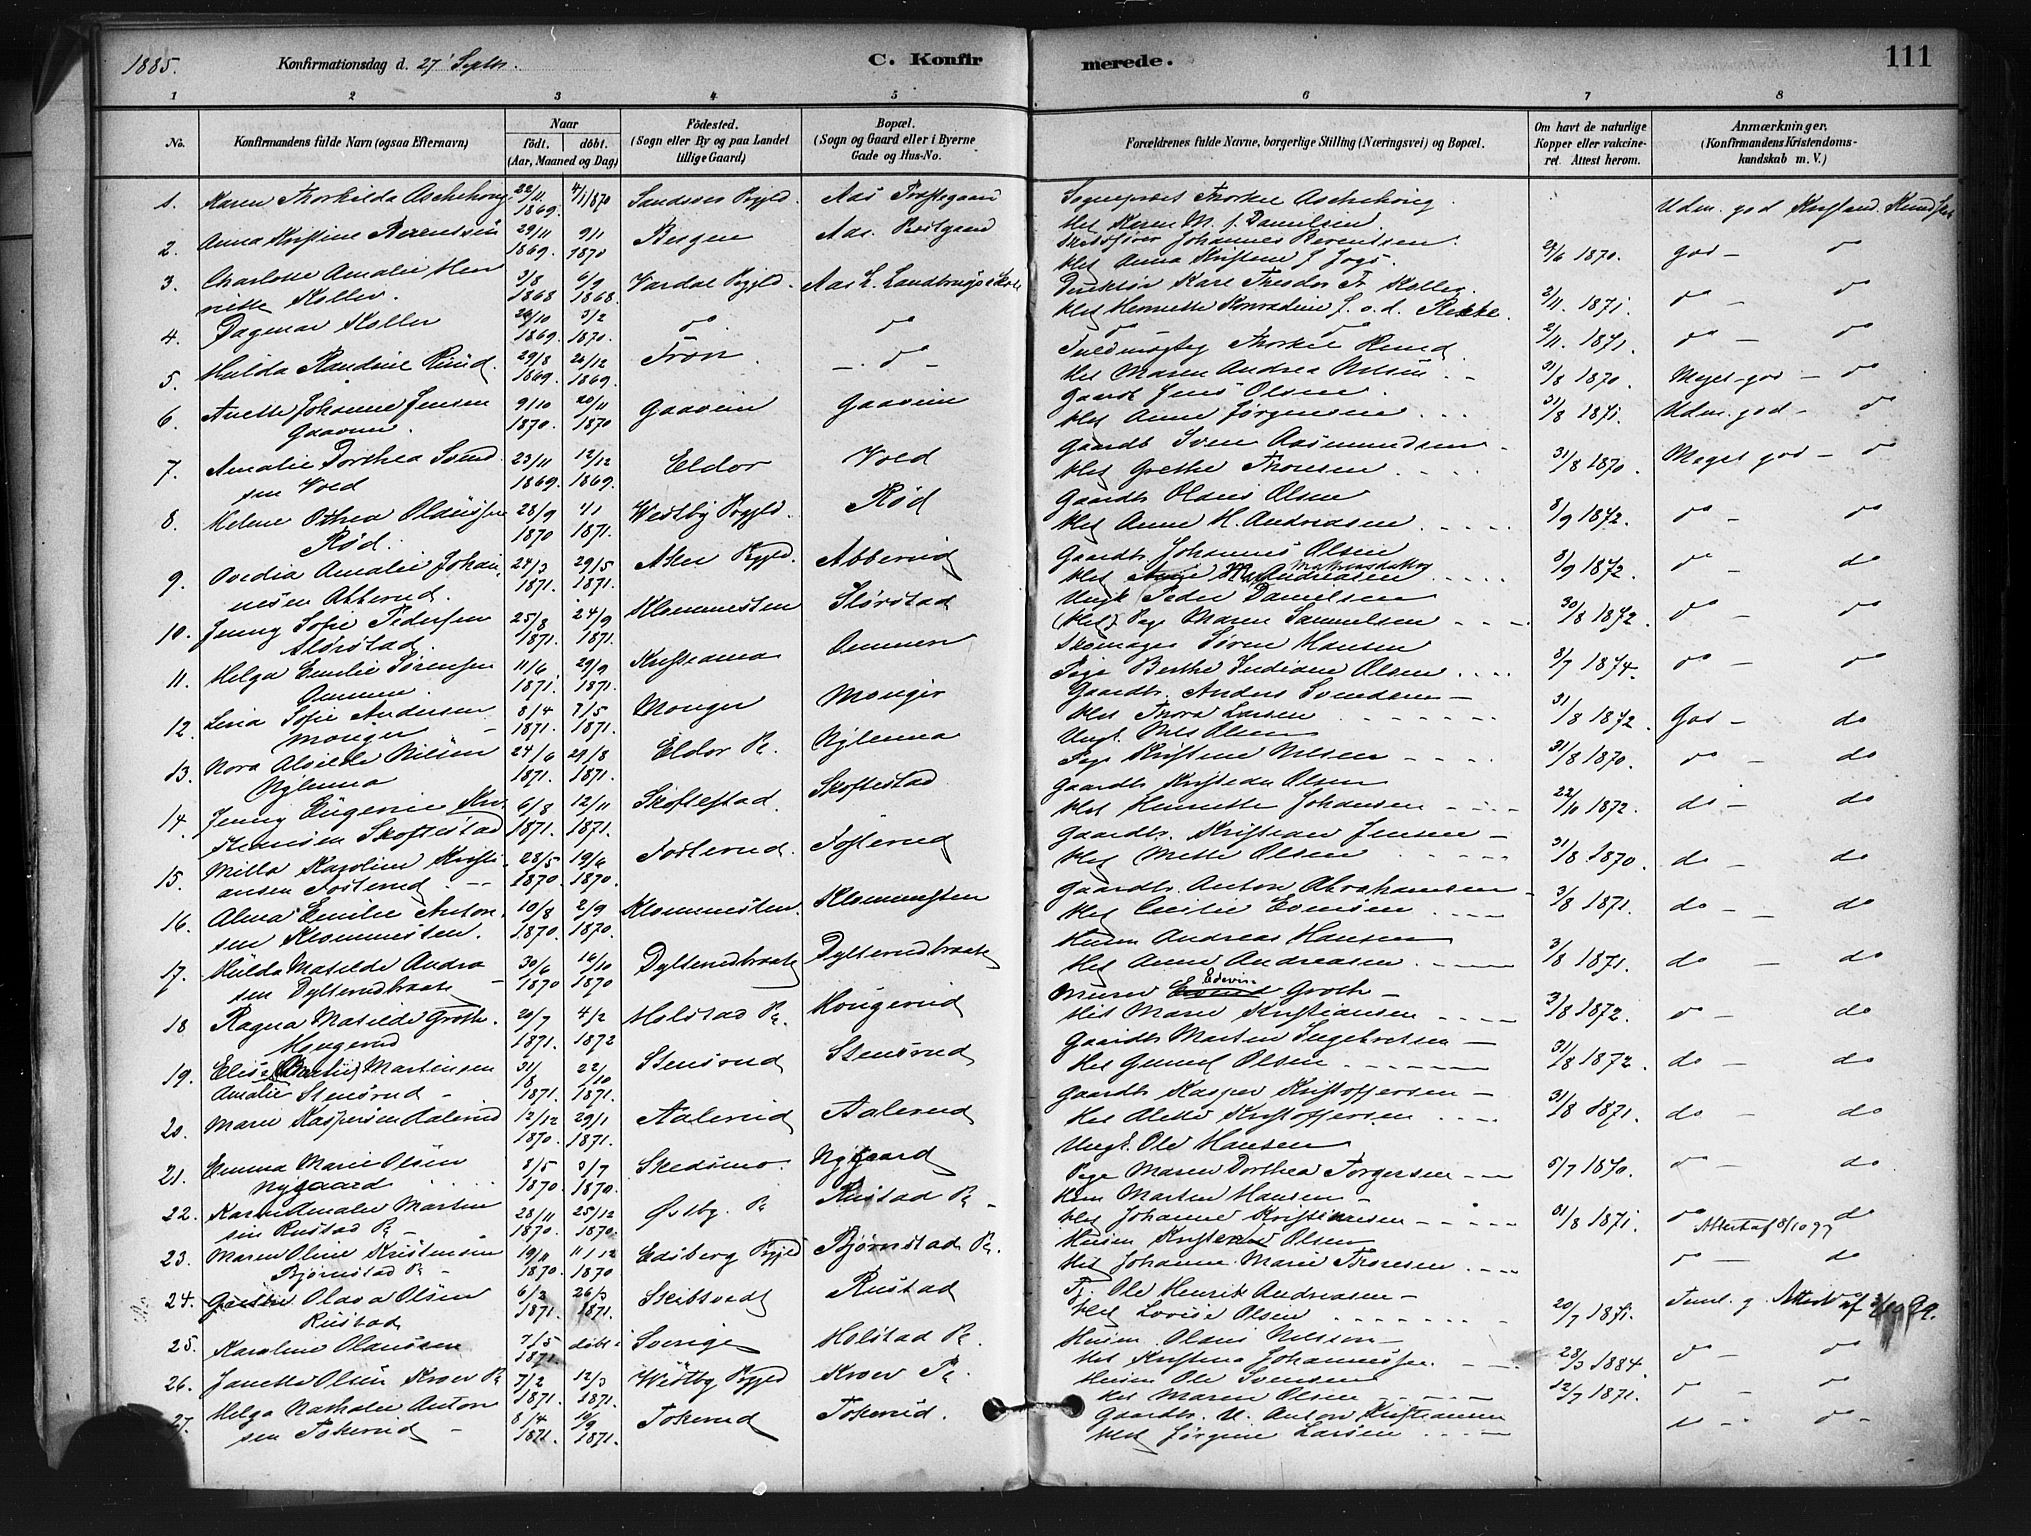 1885. Konfirmationsdag d. 27' Septbr. C. Konfirmerede. 111
1 2 3 4 5 6 7 8
No.
Konfirmandens fulde Navn (ogsaa Efternavn)
Naar
født. døbt.
(Aar, Maaned og Dag)
Fødested.
(Sogn eller By og paa Landet
tillige Gaard)
Bopæl.
(Sogn og Gaard eller i Byerne
Gade og Hus-No.
Forældrenes fulde Navne, borgerlige Stilling (Næringsvei) og Bopæl.
Om havt de naturlige
Kopper eller vakcine-
ret. Attest herom.
Anmærkninger.
(Konfirmandens Kristendoms-
kundskab m. V.)
1. Karen Thorkilda Aschehoug 22/11 1869. 4/1 1870 Sandsver Prgjld. Aas Præstegaard
Sogneprest Thorkil Aschehoug
Hst Karen M. f. Danielsen. Udm. god Kristend. Kundskab
2. Anna Kristine Berentsen 29/11 1869. 9/11 1870 Bergen Aas
Johannes Berentsen.
Hst Anna Kristine f. 29/6 1870. god — do
3. Charlotte Amalie Hen
riette Koller. 3/8 1868 6/9 1868. Vardal Prgjld. Aas L. Landbrugsskole
Direktør Karl Theodor Fr. Koller
Hst Henriette Konradine f. v. d. 2/11 1871. do — do
4. Dagmar Koller 26/10 1869. 3/2 1870. do do
do do 2/11 1871. do — do
5. Hulda Randine Ruud. 29/8 1869. 26/12 1869. Trøn do
Fuldmægtig Thorkil Ruud
Hst Maren Andrea Nilsen 31/8 1870. Meget god — do
6. Anette Johanne Jensen
Gaavim. 9/10 1870. 20/11 1870 Gaavim Gaavim
Gaardb Jens Olsen.
Hst Anne Jørgensen 31/8 1871. Udm. god — do
7. Amalie Dorthea Svend
sen Vold 23/11 1869. 12/12 1869. Eldor Vold
Gaardb Sven Aasmundsen
Hst Grethe Thoresen. 31/8 1870. Meget god — do
8. Helene Othea Olaussen
Rød. 28/9 1870 4/1 1871. Westby Prgjld. Rød
Gaardb. Olaus Olsen
Hst Anne H. Andreasen 8/9 1872. do — do
9. Ovedia Amalie Johan
nesen Abberud. 24/3 1871. 29/5 1871. Asker Prgjld. Abberud
Gaardb. Johannes Olsen
Hst Andreasen 8/9 1872. do — do
10. Jenny Sofie Pedersen
Storstad 25/8 1871. 24/9 1871. Klommesten Storstad
Ungk Peder Danielsen
(Hst) Pige Maren Samuelsen 30/8 1872. do — do
11. Helga Emilie Sørensen
Ommen. 11/6 1871. 29/9 1871. Kristiania Ommen
Skomager Søren Hansen
Pige Berthe Olsen 8/7 1874. do — do
12. Lina Sofie Andersen
Monger 8/4 1871. 7/5 1871. Monger Monger
Gaardb. Anders Svendsen —
Hst Thora Larsen 31/8 1872. God — do
13. Nora Alvilde Nilsen
Nylenna 24/6 1871. 29/8 1871. Eldor Pl. Nylenna
Ungk. Nils Olsen
Pige Kristine Nilsen 31/8 1870. do — do
14. Jenny Eugenie Kri
stiansen Skoftestad 6/8 1871. 12/11 1871. Skoftestad. Skoftestad
Gaardb Kristian Olsen
Hst Henriette Johansen 22/10 1872. do — do
15. Milla Karoline Kristi
ansen Fosterud. 28/5 1870. 19/6 1870. Fosterud. Fosterud
Gaardb. Kristian Jensen —
Hst Mette Olsen 31/8 1870. do — do
16. Alma Emilie Anton
sen Klommesten. 10/8 1870. 2/9 1870. Klommesten. Klommesten
Gaardb. Anton Abrahamsen
Hst Cecilie Evensen 3/8 1871. do — do
17. Hulda Matilde Andra
sen Dylterudbraate 30/6 1870 16/10 1870 Dylterudbraate Dylterudbraate
Husm Andreas Hansen
Hst Anne Andreasen 3/8 1871. do — do
18 Ragna Matilde Groth.
Hougerud 20/7 1871. 4/2 1872 Holstad Pl. Hougerud
Murer Edvin Groth —
Hst Marie Kristiansen 31/8 1872. do — do
19. Elise Martinsen
Amalie Stensrud 31/8 1871. 22/10 1871. Stensrud Stensrud
Gaardb Martin Ingebretsen —
Hst Gunel Olsen 31/8 1872. do do
20. Marie Kaspersen Aalerud 12/12 1870. 29/1 1871. Aalerud Aalerud
Gaardb Kasper Kristoffersen —
Hst Alette Kristoffersen 31/8 1871. do — do
21. Emma Marie Olsen
Nygaard 8/5 1870. 3/7 1870. Skedsmo. Nygaard
Ungk. Ole Hansen
Pige Maren Dorthea Torgersen 5/7 1870. do — do
22. Karen Amalie Martin
sen Rustad Pl. 28/11 1870. 25/12 1870. Østby. Pl. Rustad Pl.
Husm Martin Hansen
Hst Johanne Kristiansen 31/8 1871. do do
Attest af 8/10 97
23. Maren Oline Kristensen
Bjørnstad Pl. 19/11 1870. 11/12 1870 Edsberg Prgjld Bjørnstad Pl.
Husm Olsen
Hst Johanne Marie Thoresen do — do
24. Olava Olsen
Rustad 6/2 1871. 26/3 1871. Skibtvedt Rustad
Tj. Ole Henrik Andreasen —
Hst Lovise Olsen 20/7 1871. Teml. g. Attest af 99.
25. Karoline Olaussen 7/5 1871. døbt i Sverige Holstad Pl.
Husm Olaus Nilsson
Hst Kristine Johannessen 28/3 1884. do — do
26. Janetta Olsen Kroer Pl 7/2 1871. 12/3 1871. Westby Prgjld Kroer Pl.
Husm Ole Svensen
Hst Maren Olsen 12/7 1871. do — do
27. Helga Nathalie Anton
sen Tokerud 8/4 1871. 1871. Tokerud Tokerud.
Gaardb. Anton Kristiansen
Hst Jørgine Larsen do do